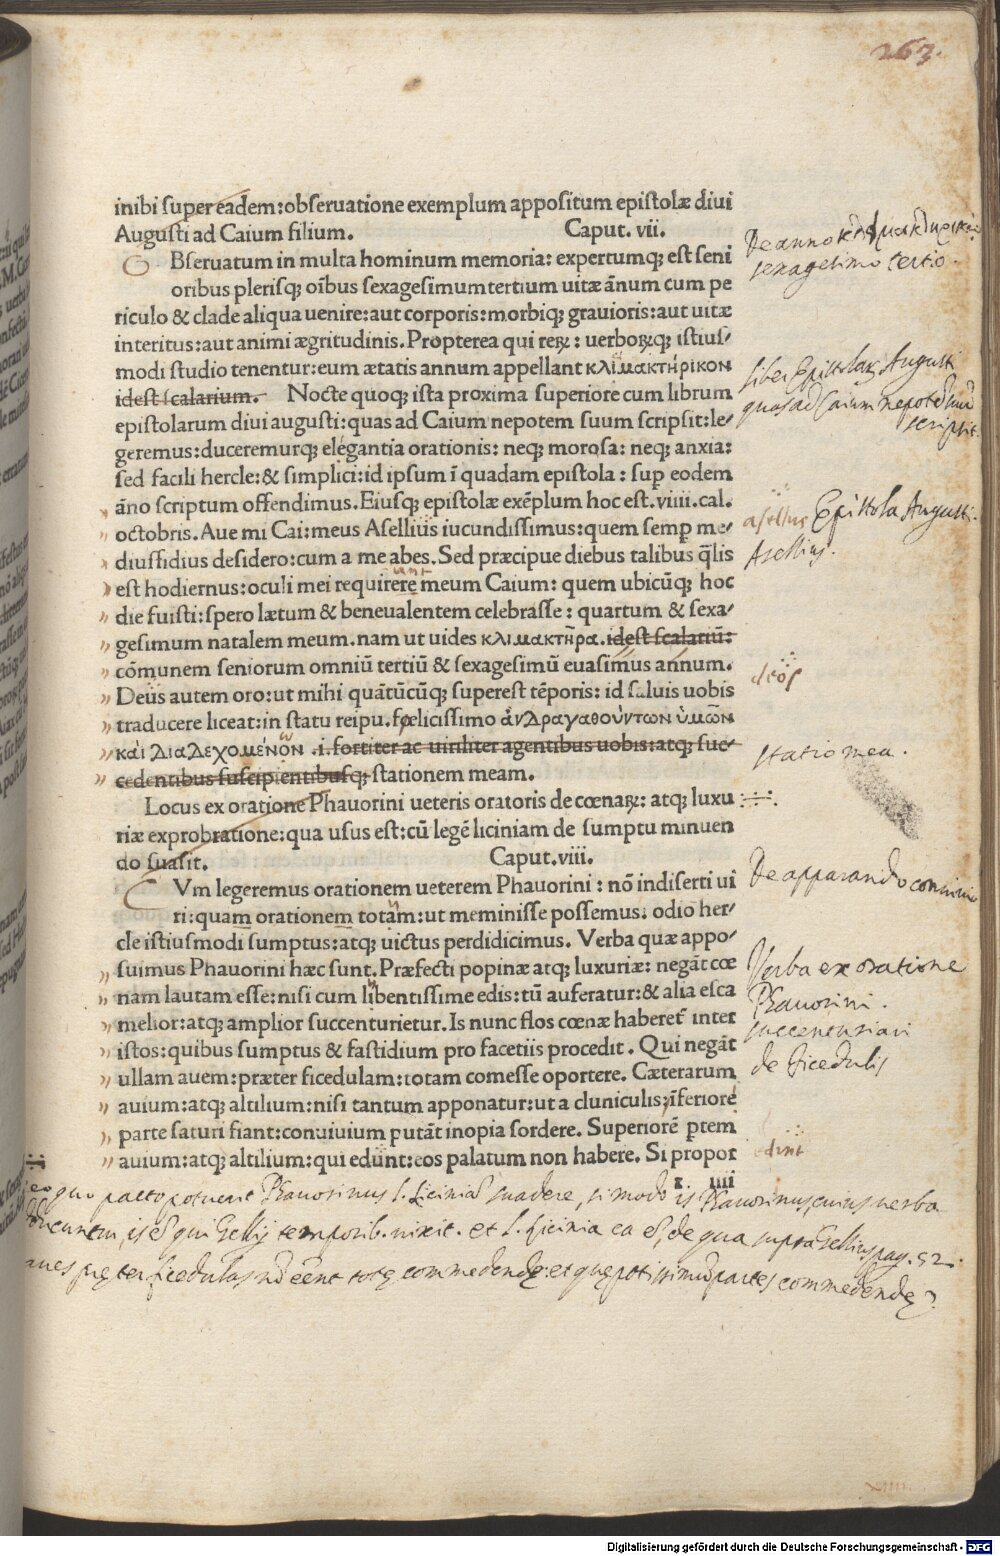 263.
inibi super eadem:obseruatione exemplum appositum epistolæ diui
Augusti ad Caium filium. Caput. vii.
Bseruatum in multa hominum memoria: expertumqꝫ est seni
oribus plerisqꝫ oībus sexagesimumtertium uitæ ānum cum pe
riculo & clade aliqua uenire:aut corporis:morbiqꝫ grauioris:aut uitæ
interitus:aut animi ægritudinis.Propterea qui reꝝ: uerboꝝqꝫ istius/
modi studio tenentur:eum ætatis annum appellant κλιμακτήρικον
idest scalarium. Nocte quoqꝫ ista proxima superiore cum librum
epistolarum diui augusti:quas ad Caium nepotem suum scripsit:le/
geremus:duceremurqꝫ elegantia orationis: neqꝫ morosa: neqꝫ anxia:
sed facili hercle:& simplici:id ipsum ī quadam epistola: sup eodem
āno scriptum offendimus.Eiusqꝫ epistolæ exēplum hoc est.viiii.cal.
octobris.Aue mi Cai:meus Asellius iucundissimus:quem semp me/
diusfidius desidero:cum a me abes.Sed præcipue diebus talibus q̄lis
est hodiernus:oculi mei requirere meum Caium: quem ubicūqꝫ hoc
die fuisti:spero lætum & beneualentem celebrasse: quartum & sexa/
gesimum natalem meum.nam ut uides κλιμακτῆρα.idest scalariū:
cōmunem seniorum omniū tertiū & sexagesimū euasimus annum.
Deus autem oro:ut mihi quātūcūqꝫ superest tēporis: id saluis uobis
traducere liceat:in statu reipu.fœlicissimo ἀνδραγαθούντων ὑμῶν
και διαδεχομένον .i.fortiter ac uiriliter agentibus uobis:atqꝫ suc/
cedentibus suscipientibusqꝫ stationem meam.
Locus ex oratione Phauorini ueteris oratoris de cœnaꝝ: atqꝫ luxu
riæ exprobratione:qua usus est:cū legē liciniam de sumptu minuen
do suasit. Caput.viii.
Vm legeremus orationem ueterem Phauorini: nō indiserti ui
ri:quam orationem totam:ut meminisse possemus: odio her/
cle istiusmodi sumptus:atqꝫ uictus perdidicimus. Verba quæ appo/
suimus Phauorini hæc sunt.Præfecti popinæ atqꝫ luxuriæ: negāt cœ
nam lautam esse:nisi cum libentissime edis:tū auferatur:& alia esca
melior:atqꝫ amplior succenturietur.Is nunc flos cœnæ haberet̄ inter
istos:quibus sumptus & fastidium pro facetiis procedit. Qui negāt
ullam auem:præter ficedulam:totam comesse oportere. Cæterarum
auium:atqꝫ altilium:nisi tantum apponatur:ut a cluniculis:īferiore
parte saturi fiant:conuiuium putāt inopia sordere. Superiorē ptem
auium:atqꝫ altilium:qui edunt:eos palatum non habere. Si propor
x. iiii
sexagesimo tertio.
liber Epistolaꝝ Augusti
quas ad Caium nepotē suū
scripsit.
asellus Epistola Augusti.
Asellius.
deos
statio mea.
De apparando conuiuio
Verba ex oratione
Phauorini.
succenturiari
de ficedulis
edint
quo pacto potuerit Phauorinus l. liciniā suadere, si modo is Phauorinus, cuius uerba
is ē qui Gellij temporib. uixit. et l. licinia ea ē, de qua supra Gellius pag. 52.